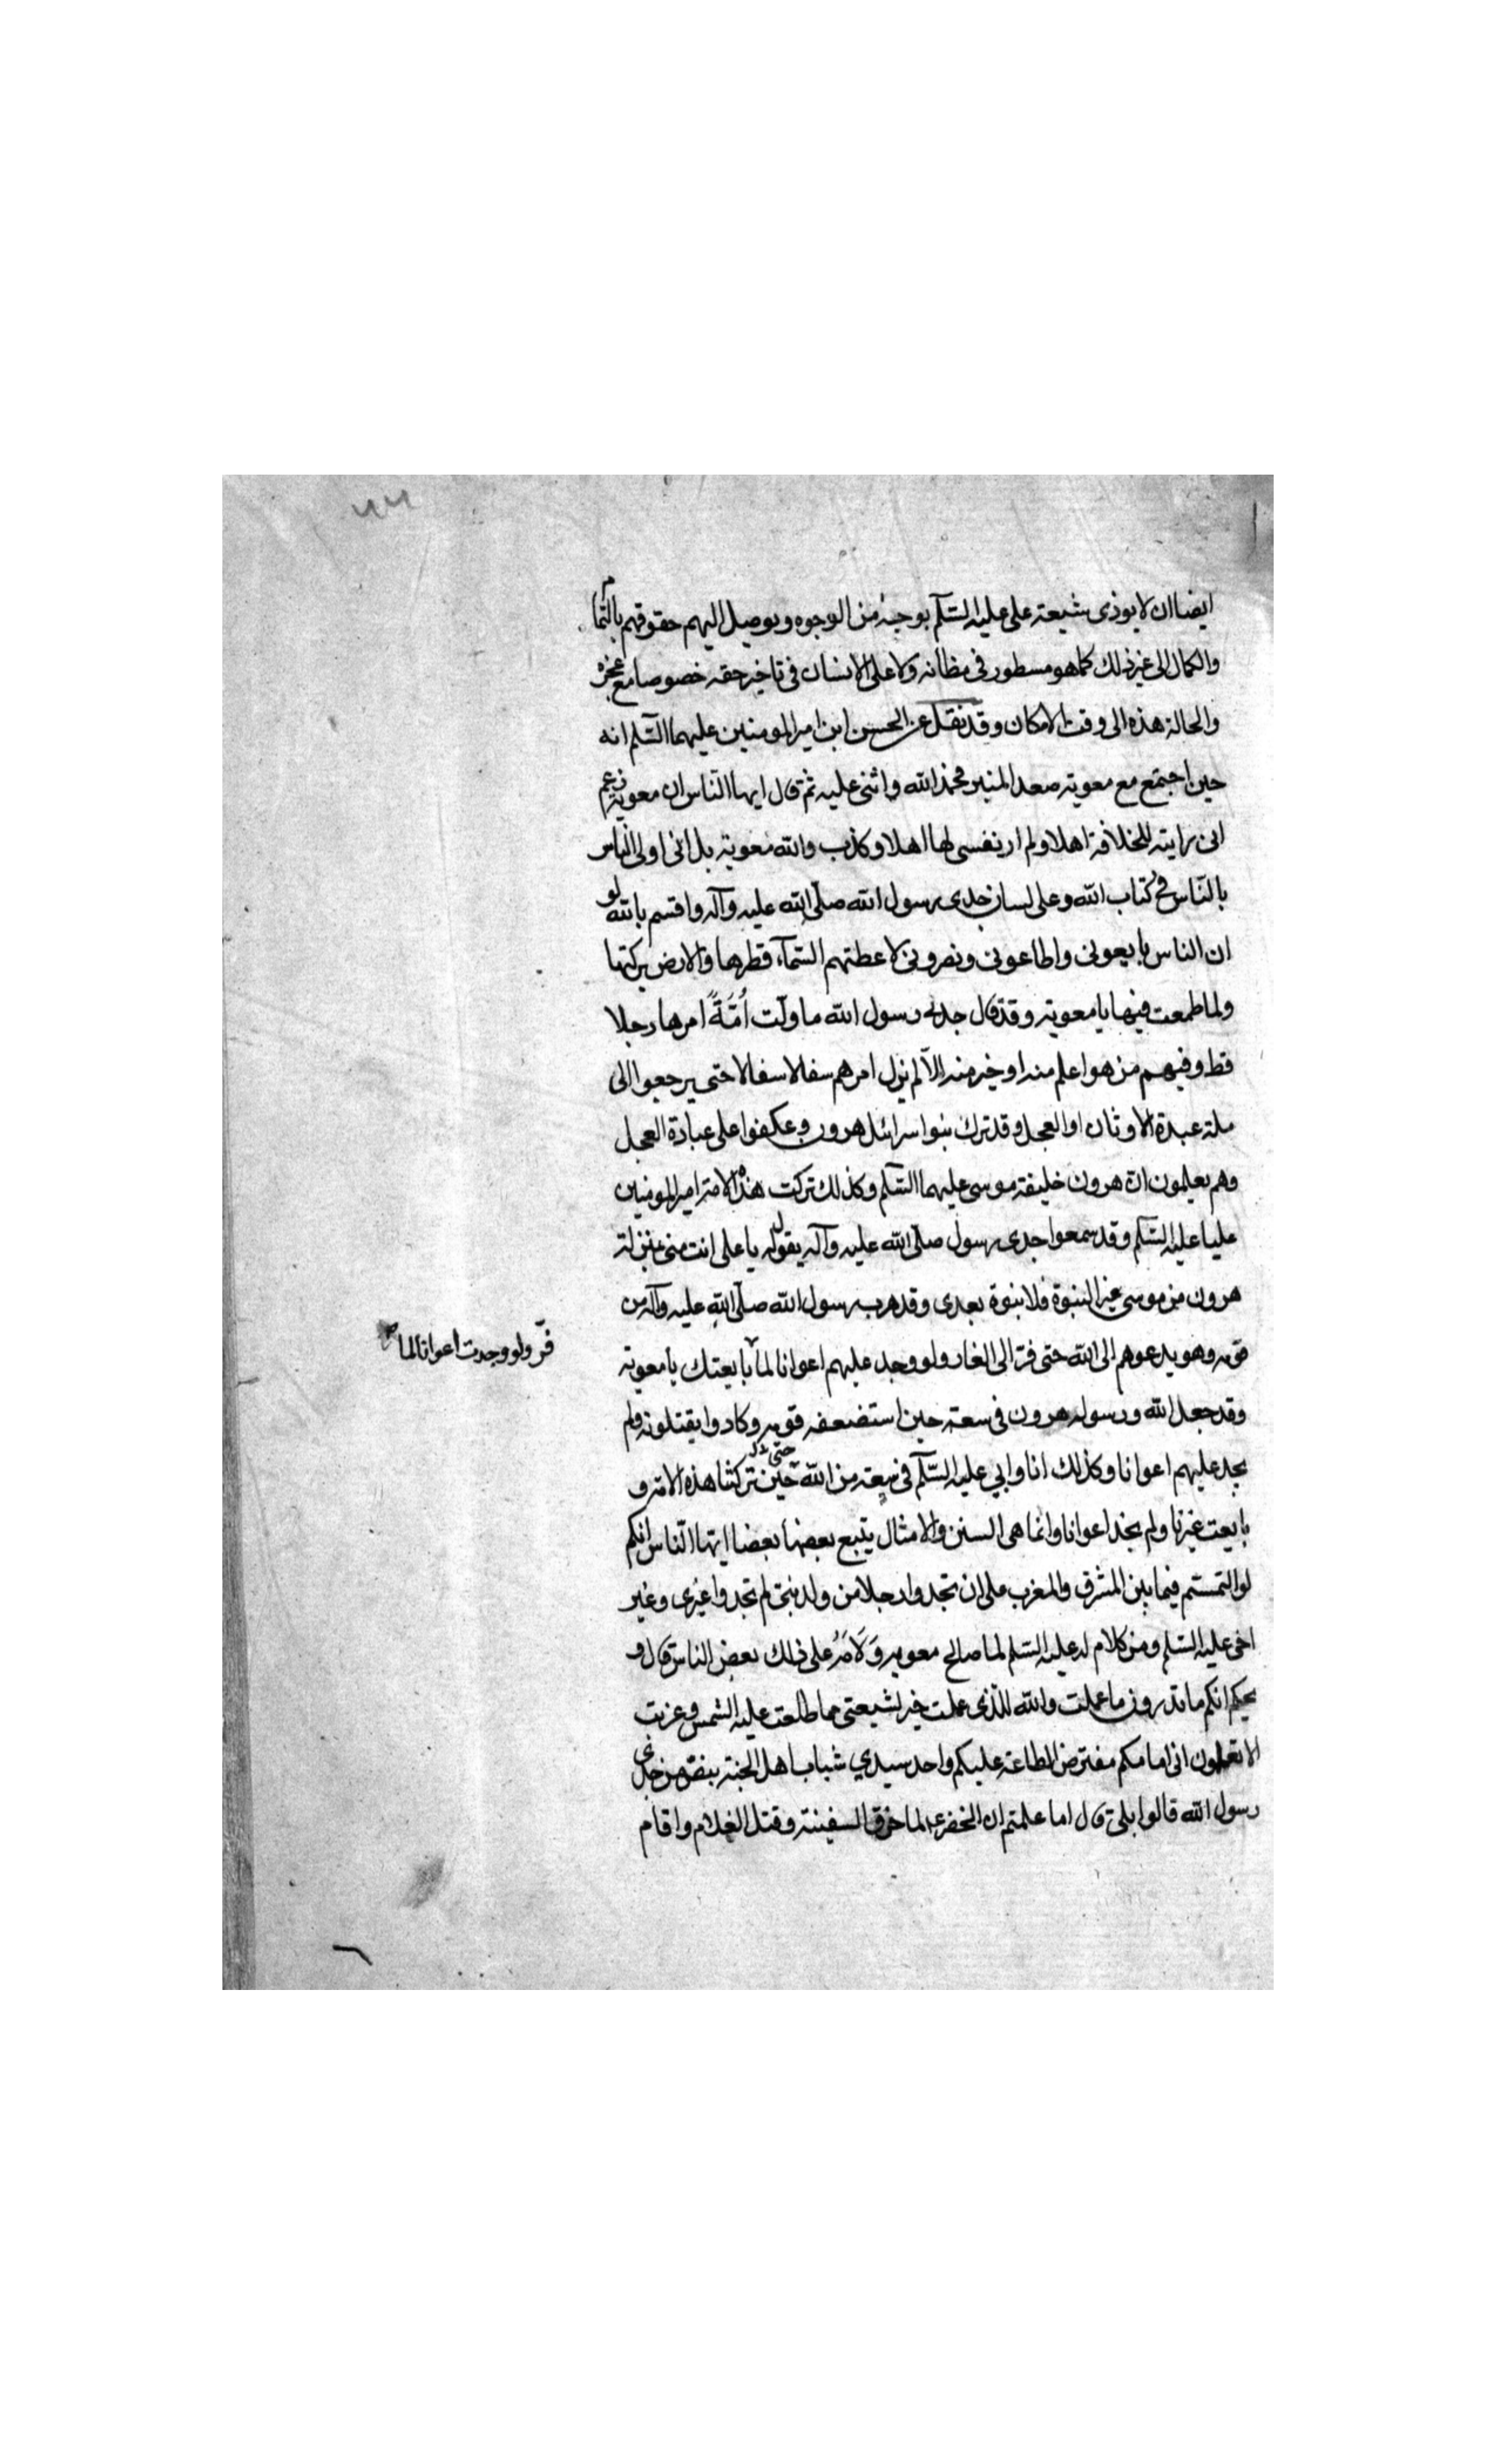 ايضا ان لا يوذى شيعة على عليه السّلم بوجه من الوجوه ويوصل اليهم حقوقهم بالتمام
والكمال الى غير ذلك كما هو مسطور فى مظانه ولا على الانسان فى تاخير حقه خصوصا مع عجزه
والحالة هذه الى وقت الامكان وقد نقل عن الحسن ابن امير المومنين عليهما السّلم انه
حين اجتمع مع معوية صعد المنبر فحمد الله واثنى عليه ثم قال ايها النّاس ان معوية زعم
انى رايته للخلافة اهلا ولم ار نفسى لها اهلا وكذب والله معوية بل انى اولى الناس
بالنّاس فى كتاب الله وعلى لسان جدى رسول الله صلّى الله عليه وآله واقسم بالله لو
ان الناس بايعونى واطاعونى ونصرونى لاعطتهم السّمآء قطرها والارض بركتها
ولما طمعت فيها يا معوية وقد قال جدى رسول الله ما ولّت اُمّةً امرها رجلا
قط وفيهم من هو اعلم منه او خير منه الاّ لم يزل امرهم سفالا سفالا حتى يرجعوا الى
ملة عبدة الاوثان او العجل وقد ترك بنوا سرائل هرون وعكفوا على عبادة العجل
وهم يعلمون ان هرون خليفة موسى عليهما السّلم وكذلك تركت هذه الامة امير المومنين
عليا عليه السّلم وقد سمعوا جدى رسول صلّى الله عليه وآله يقول له يا على انت منى بمنزلة
هرون من موسى غير النبوة فلا نبوة بعدى وقد هرب رسول الله صلّى الله عليه وآله من
قومه وهو يدعوهم الى الله حتى فرّ الى الغار ولو وجد عليهم اعوانا لما بايعتك يا معوية
فرّ ولو وجدت اعوانا لما
وقد جعل الله ورسوله هرون فى سعة حين استضعفه قومه وكادوا يقتلونه ولم
يجد عليهم اعوانا وكذلك انا وابي عليه السّلم فى سعة من الله حين تركتنا هذه الامة و
حتى
بايعت غيرنا ولم نجد اعوانا وانما هى السنن والامثال يتبع بعضها بعضا ايها النّاس انكم
لو التمستم فيما بين المشرق والمغرب على ان تجدوا رجلا من ولد نبى لم تجدوا غيرى وغير
اخى عليه السّلم ومن كلام له عليه السّلم لما صالح معوية وَلَامَهُ على ذلك بعض الناس قال و
يحكم انكم ما تدرون ما عملت والله للذى عملت خير لشيعتى مما طلعت عليه الشمس وغربت
الا تعلمون انى امامكم مفترض الطاعة عليكم واحد سيدي شباب اهل الجنة بنصّ من جدى
رسول الله قالوا بلى قال اما علمتم ان الخضر ع لما خرق السفينة وقتل الغلام واقام